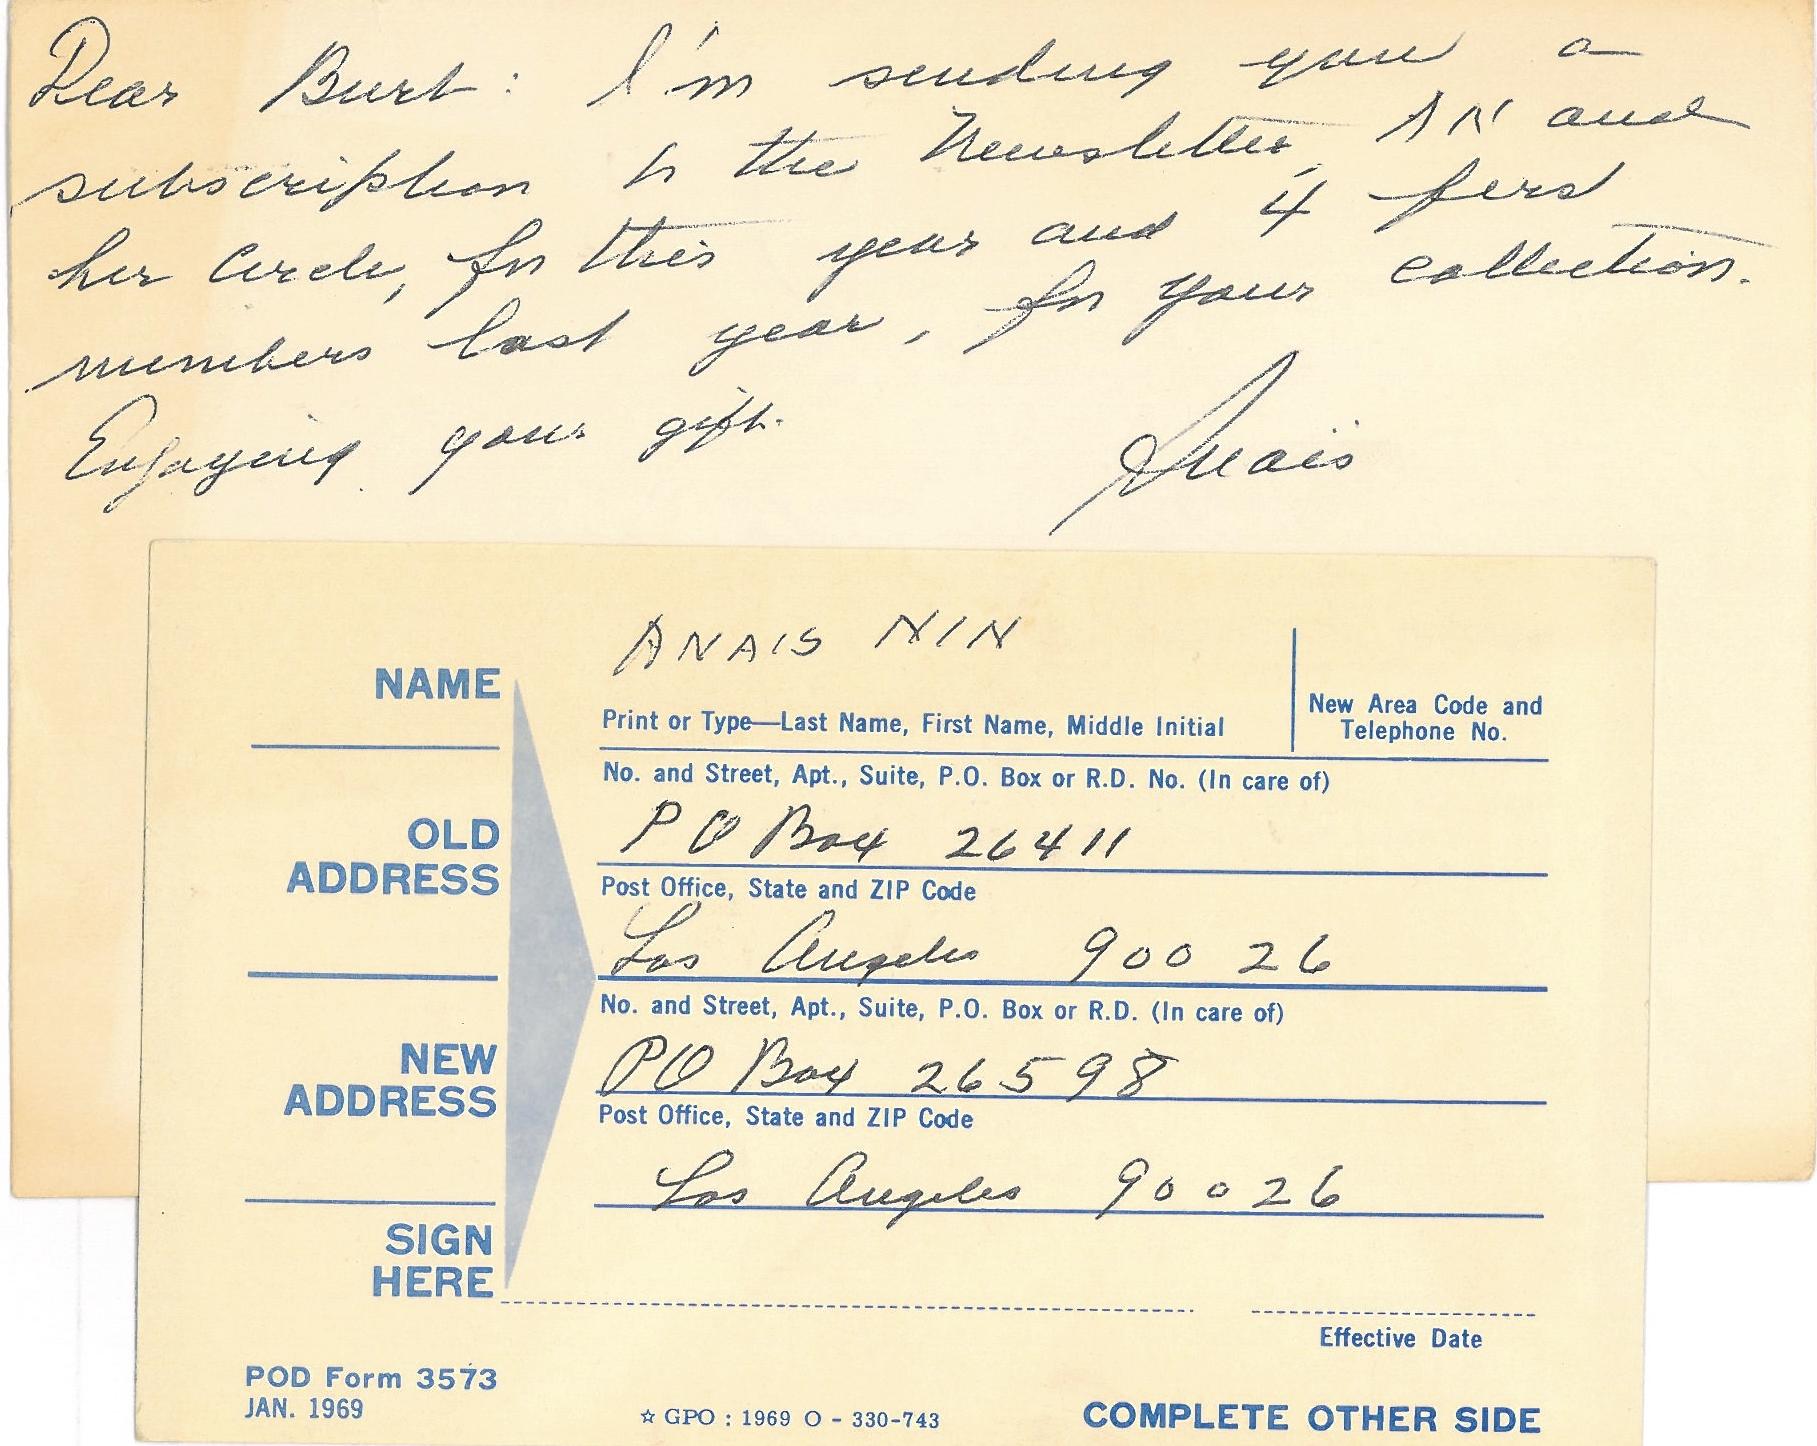 Dear Burt: I'm sending you a
subscription to the Newsletter, AN and
her Circle, for this year and 4 first
numbers last year, for your collection.
Enjoying your gift.
Anaïs
ANAIS NIN
NAME
Print or Type—Last Name, First Name, Middle Initial
New Area Code and
Telephone No.
No. and Street, Apt., Suite, P.O. Box or R.D. No. (In care of)
OLD
ADDRESS
PO Box 26411
Post Office, State and ZIP Code
Los Angeles 90026
No. and Street, Apt., Suite, P.O. Box or R.D. (In care of)
NEW
ADDRESS
PO Box 26598
Post Office, State and ZIP Code
Los Angeles 90026
SIGN
HERE
Effective Date
POD Form 3573
JAN. 1969
☆ GPO : 1969 O - 330-743
COMPLETE OTHER SIDE